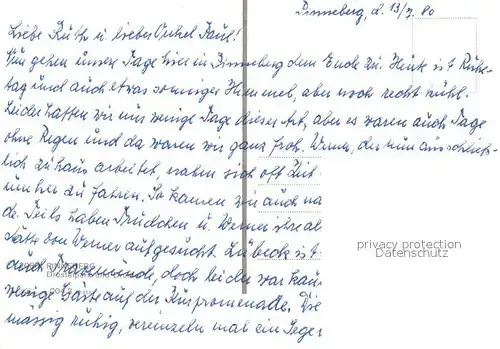 Pinneberg, d. 13/7. 80
Liebe Ruth u. lieber Onkel Paul!
Nun gehen unsere Tage hier in Pinneberg dem Ende zu. Heute ist Ruhe-
tag und auch etwas sonniger Himmel, aber noch recht kühl.
Leider hatten wir nur wenige Tage dieser Art, aber es waren auch Tage
ohne Regen und da waren wir ganz froh. Werner, der nun ausschließ-
lich zuhaus arbeitet, nahm sich oft Zeit
um hier zu fahren. So kamen wir auch na
de. Teils haben Trudchen u. Werner
von Werner aufgesucht. Lübeck ist
auch Travemünde, doch leider war kaum
wenige Gäste auf der Kurpromenade. Die
mässig ruhig, vereinzeln mal ein Segel
privacy protection
Datenschutz
PINNEBERG